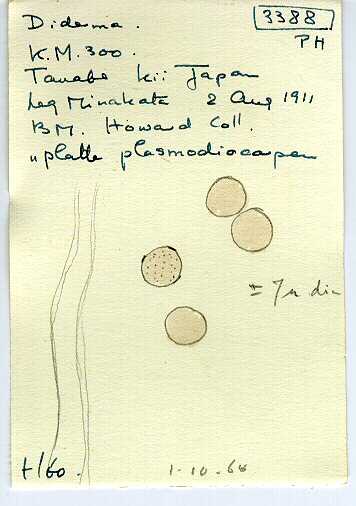 Diderma.
3388
PH
K.M. 300.
Tanabe Kii Japan
Leg Minakata 2 Aug 1911
BM. Howard Coll.
"platte plasmodiocarpen
± 7 µ dia
t/60.
1-10-66